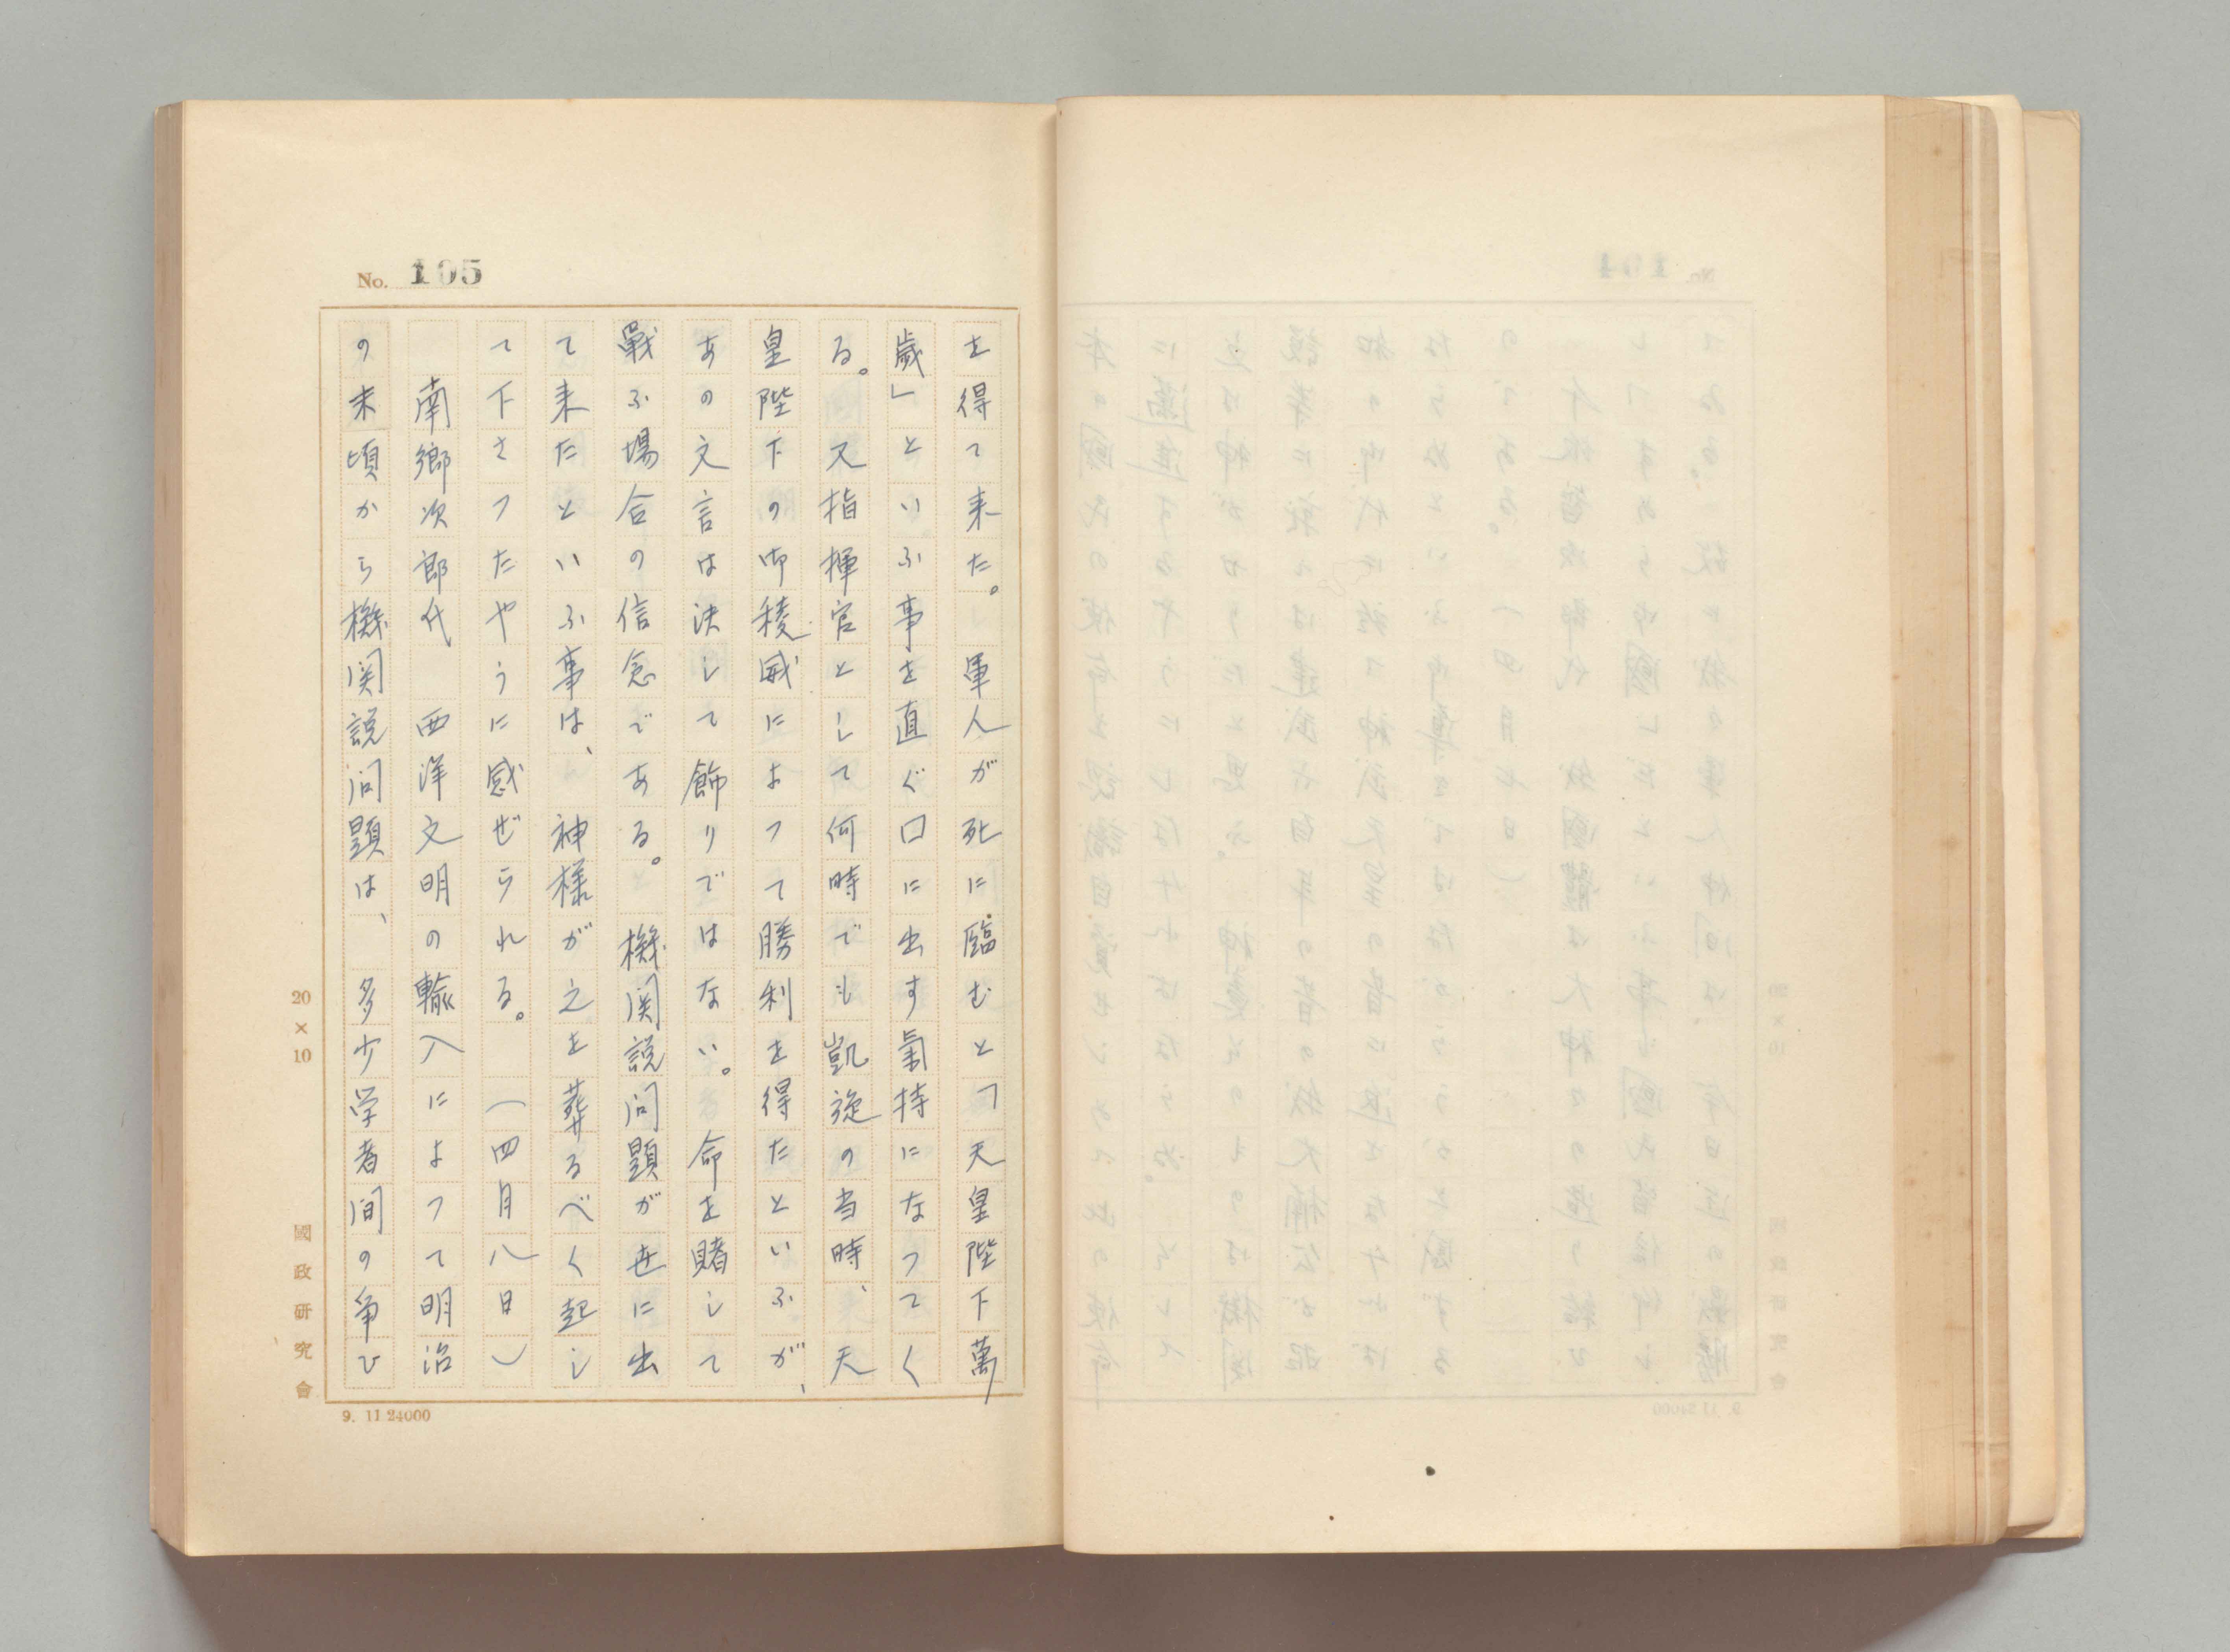 No. 105
を得て来た。軍人が死に臨むと「天皇陛下萬
歳」といふ事を直ぐ口に出す氣持になつてく
る。又指揮官として何時でも凱旋の当時、天
皇陛下の御稜威によつて勝利を得たといふが、
あの文言は決して飾りではない。命を賭して
戰ふ場合の信念である。機関説問題が世に出
て来たといふ事は、神様が之を葬るべく起し
て下さつたやうに感ぜられる。(四月八日)
南郷次郎代 西洋文明の輸入によつて明治
の末頃から機関説问題は、多少学者间の争ひ
20×10
國政研究會
9. 11 24000